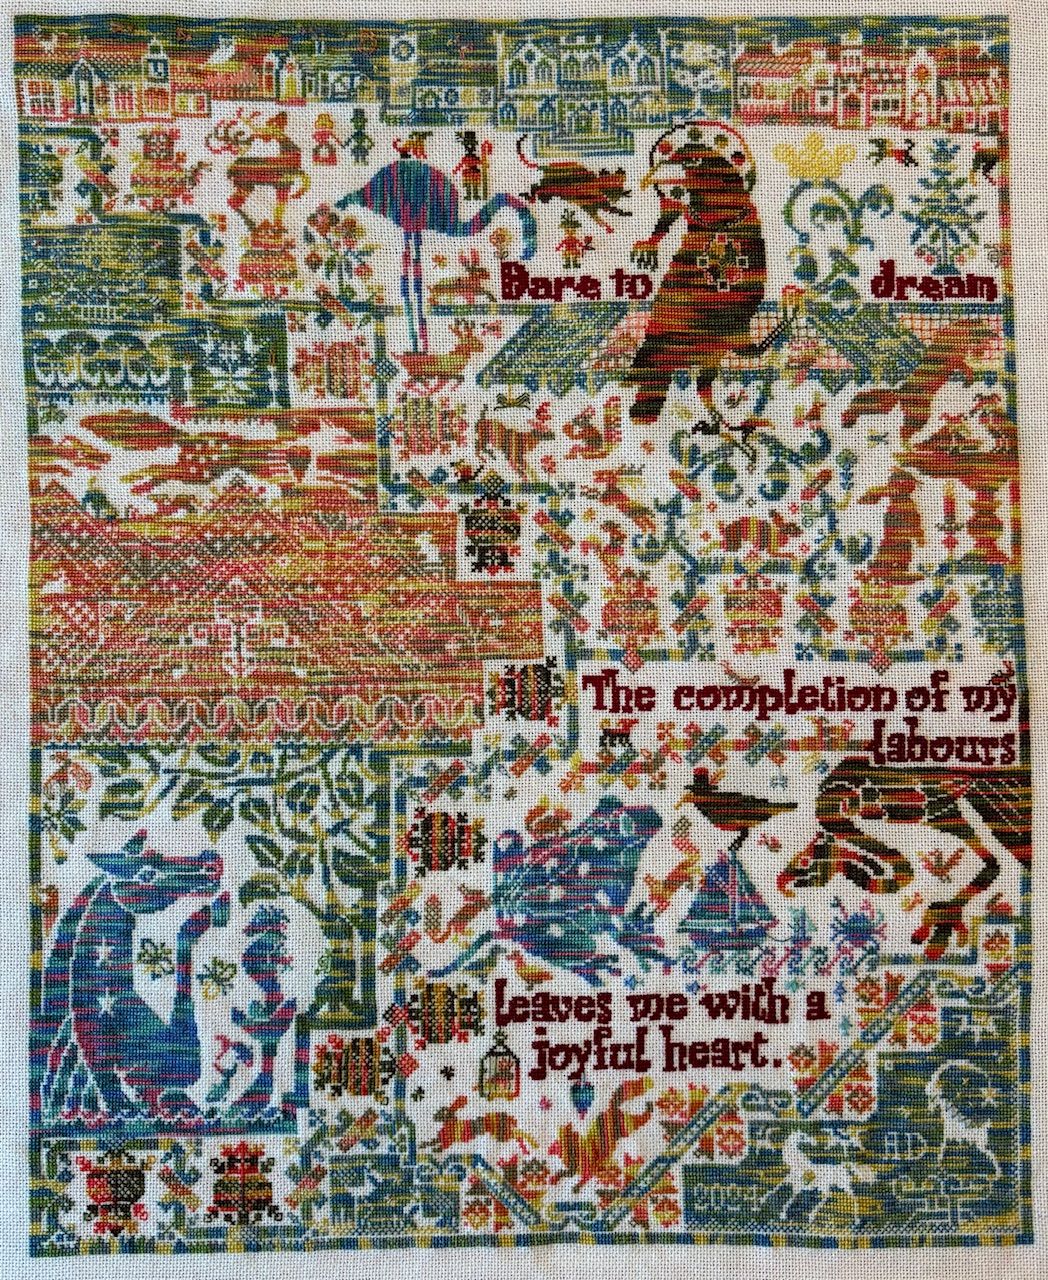 Dare to dream
The completion of my
labours
leaves me with a
joyful heart.
AD